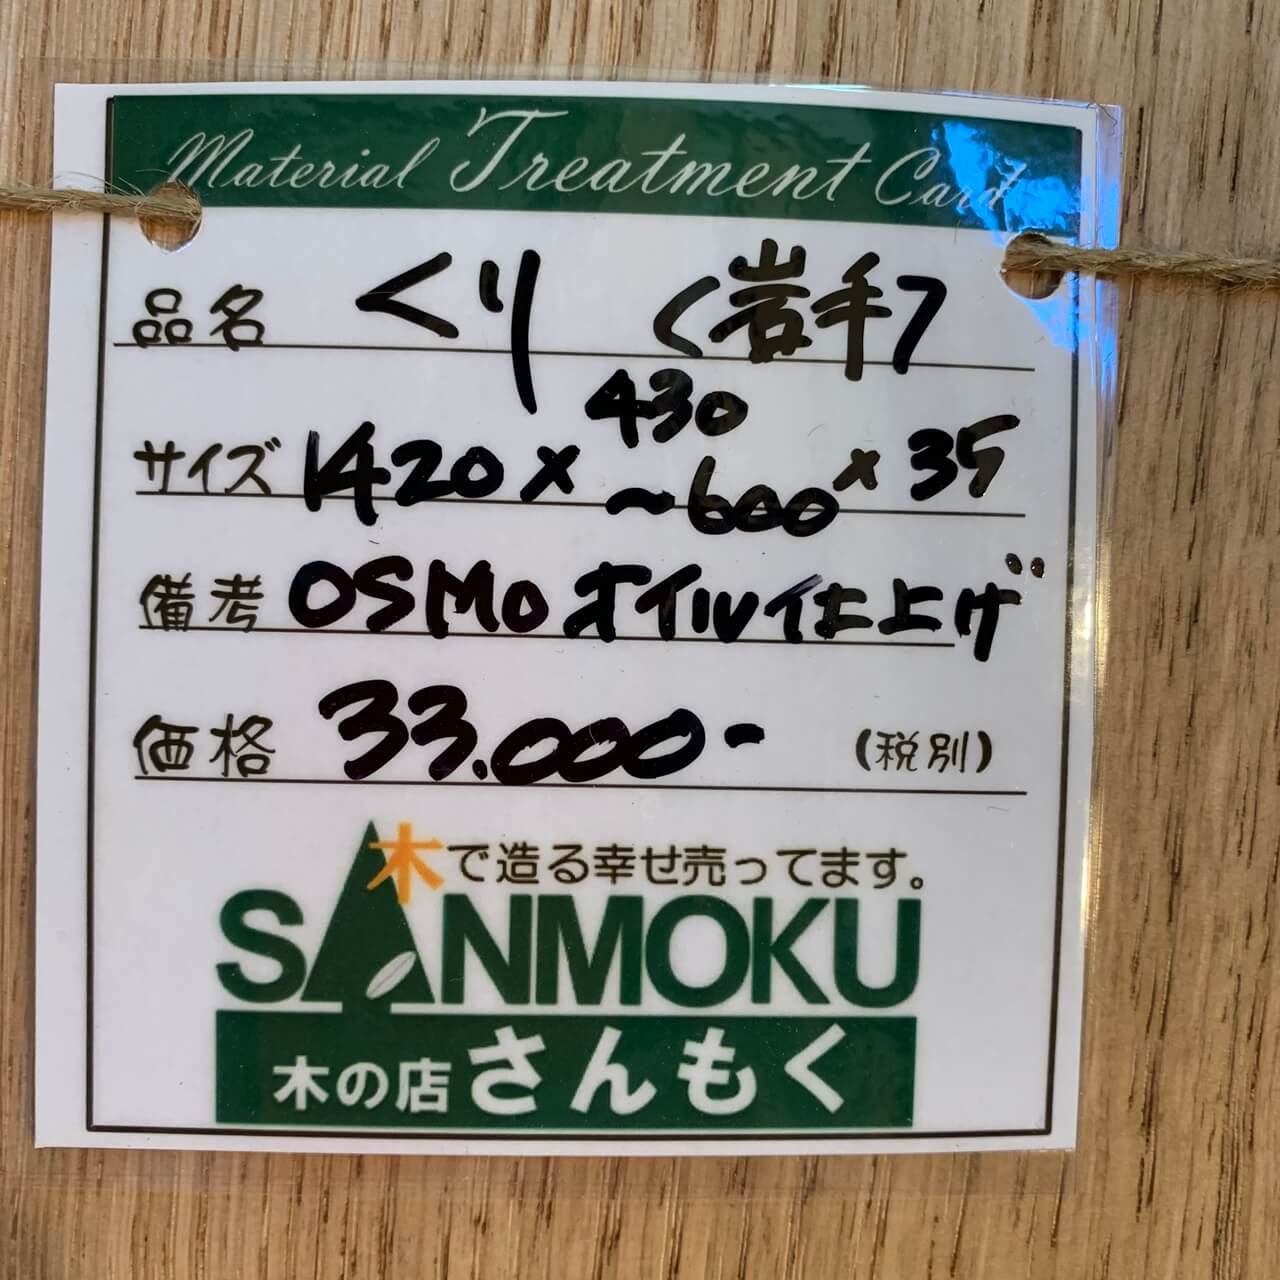 Material Treatment Card
品名 くり <岩手>
サイズ 1420 × 430～600 × 35
備考 OSMOオイル仕上げ
価格 33.000- (税別)
木で造る幸せ売ってます。
SANMOKU
木の店 さんもく